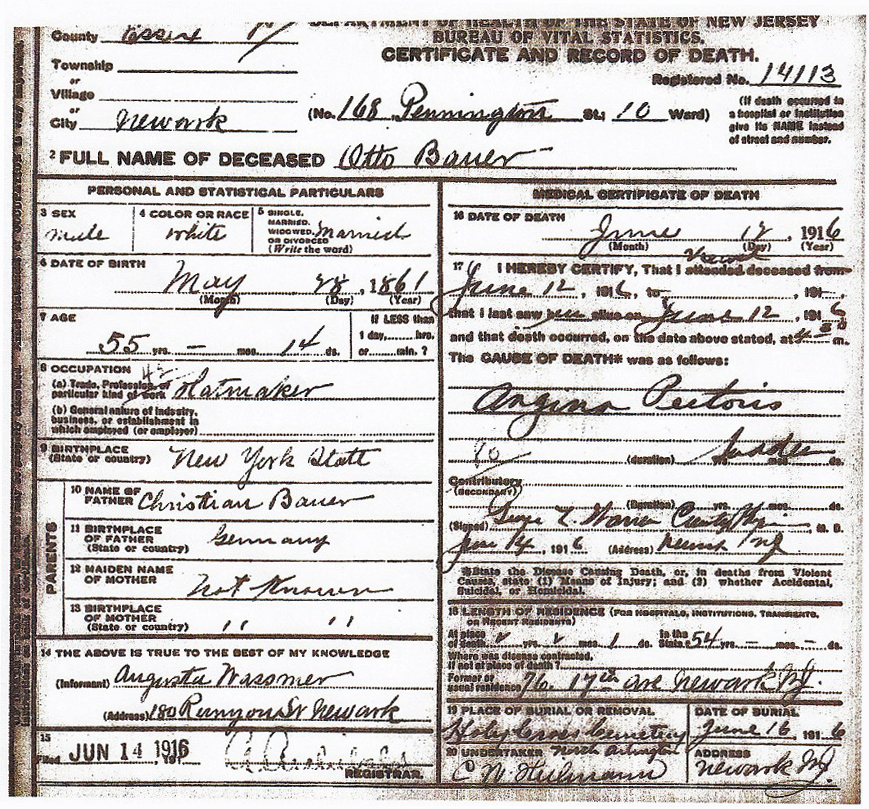 DEPARTMENT OF HEALTH OF THE STATE OF NEW JERSEY
BUREAU OF VITAL STATISTICS.
CERTIFICATE AND RECORD OF DEATH.
County Essex
Township
or
Village
or
City Newark
Registered No. 14113
(No. 168 Pennington St; 10 Ward)
(If death occurred in
a hospital or institution
give its NAME instead
of street and number.
2 FULL NAME OF DECEASED Otto Bauer
PERSONAL AND STATISTICAL PARTICULARS
3 SEX
male
4 COLOR OR RACE
white
5 SINGLE,
MARRIED,
WIDOWED,
OR DIVORCED
(Write the word)
Married
6 DATE OF BIRTH
May 28, 1861
(Month) (Day) (Year)
7 AGE
55 yrs. — mos. 14 ds.
If LESS than
1 day,......hrs.
or......min. ?
8 OCCUPATION
(a) Trade, Profession, or
particular kind of work Hatmaker
(b) General nature of industry,
business, or establishment in
which employed (or employer)
9 BIRTHPLACE
(State or country) New York State
PARENTS
10 NAME OF
FATHER Christian Bauer
11 BIRTHPLACE
OF FATHER
(State or country) Germany
12 MAIDEN NAME
OF MOTHER
Not Known
13 BIRTHPLACE
OF MOTHER
(State or country) " "
14 THE ABOVE IS TRUE TO THE BEST OF MY KNOWLEDGE
(Informant) Augusta Wassmer
(Address) 180 Runyon St Newark
15
Filed JUN 14 1916
REGISTRAR.
MEDICAL CERTIFICATE OF DEATH
16 DATE OF DEATH
June 12, 1916
(Month) (Day) (Year)
17 I HEREBY CERTIFY, That I attended deceased from
June 12, 1916, to , 191
that I last saw alive on June 12, 1916
and that death occurred, on the date above stated, at 4 30 m.
The CAUSE OF DEATH* was as follows:
Angina Pectoris
(duration) yrs. mos. ds.
Contributory
(SECONDARY)
(Duration) yrs. mos. ds.
(Signed) Warren County M. D.
14, 1916 (Address) Newark NJ
*State the Disease Causing Death, or, in deaths from Violent
Causes, state (1) Means of Injury; and (2) whether Accidental,
Suicidal, or Homicidal.
18 LENGTH OF RESIDENCE (FOR HOSPITALS, INSTITUTIONS, TRANSIENTS,
OR RECENT RESIDENTS)
At place
of death yrs. mos. 1 ds. In the
State 54 yrs. — mos. — ds.
Where was disease contracted,
If not at place of death ?
Former or
usual residence 76. 17th ave Newark NJ.
19 PLACE OF BURIAL OR REMOVAL
Holy Cross Cemetery
North Arlington
DATE OF BURIAL
June 16, 1916
20 UNDERTAKER
C W Heilmann
ADDRESS
Newark NJ.